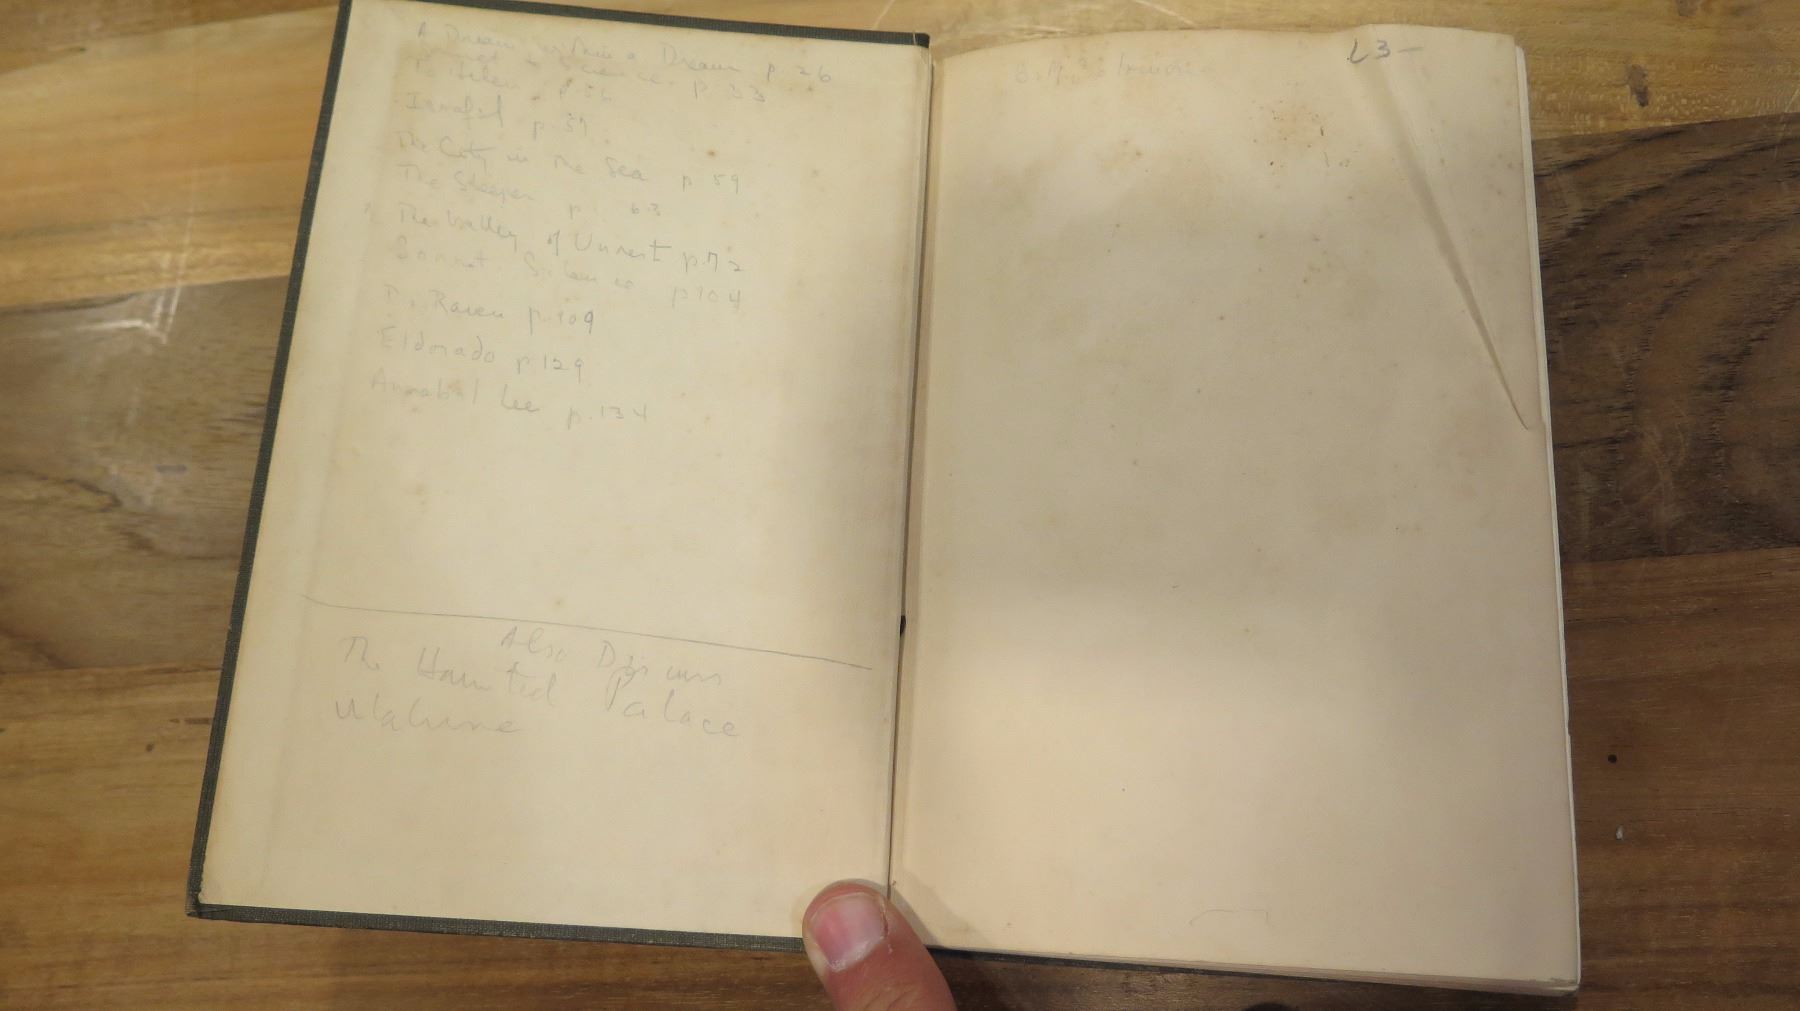 A Dream within a Dream p. 26
Sonnet to Science p. 33
To Helen p. 56
Israfel p. 57
The City in the Sea p 59
The Sleeper p. 63
The Valley of Unrest p. 72
Sonnet Silence p 104
The Raven p. 109
Eldorado p 129
Annabel Lee p. 134
Also Discuss
The Haunted Palace
Ulalume
L3-